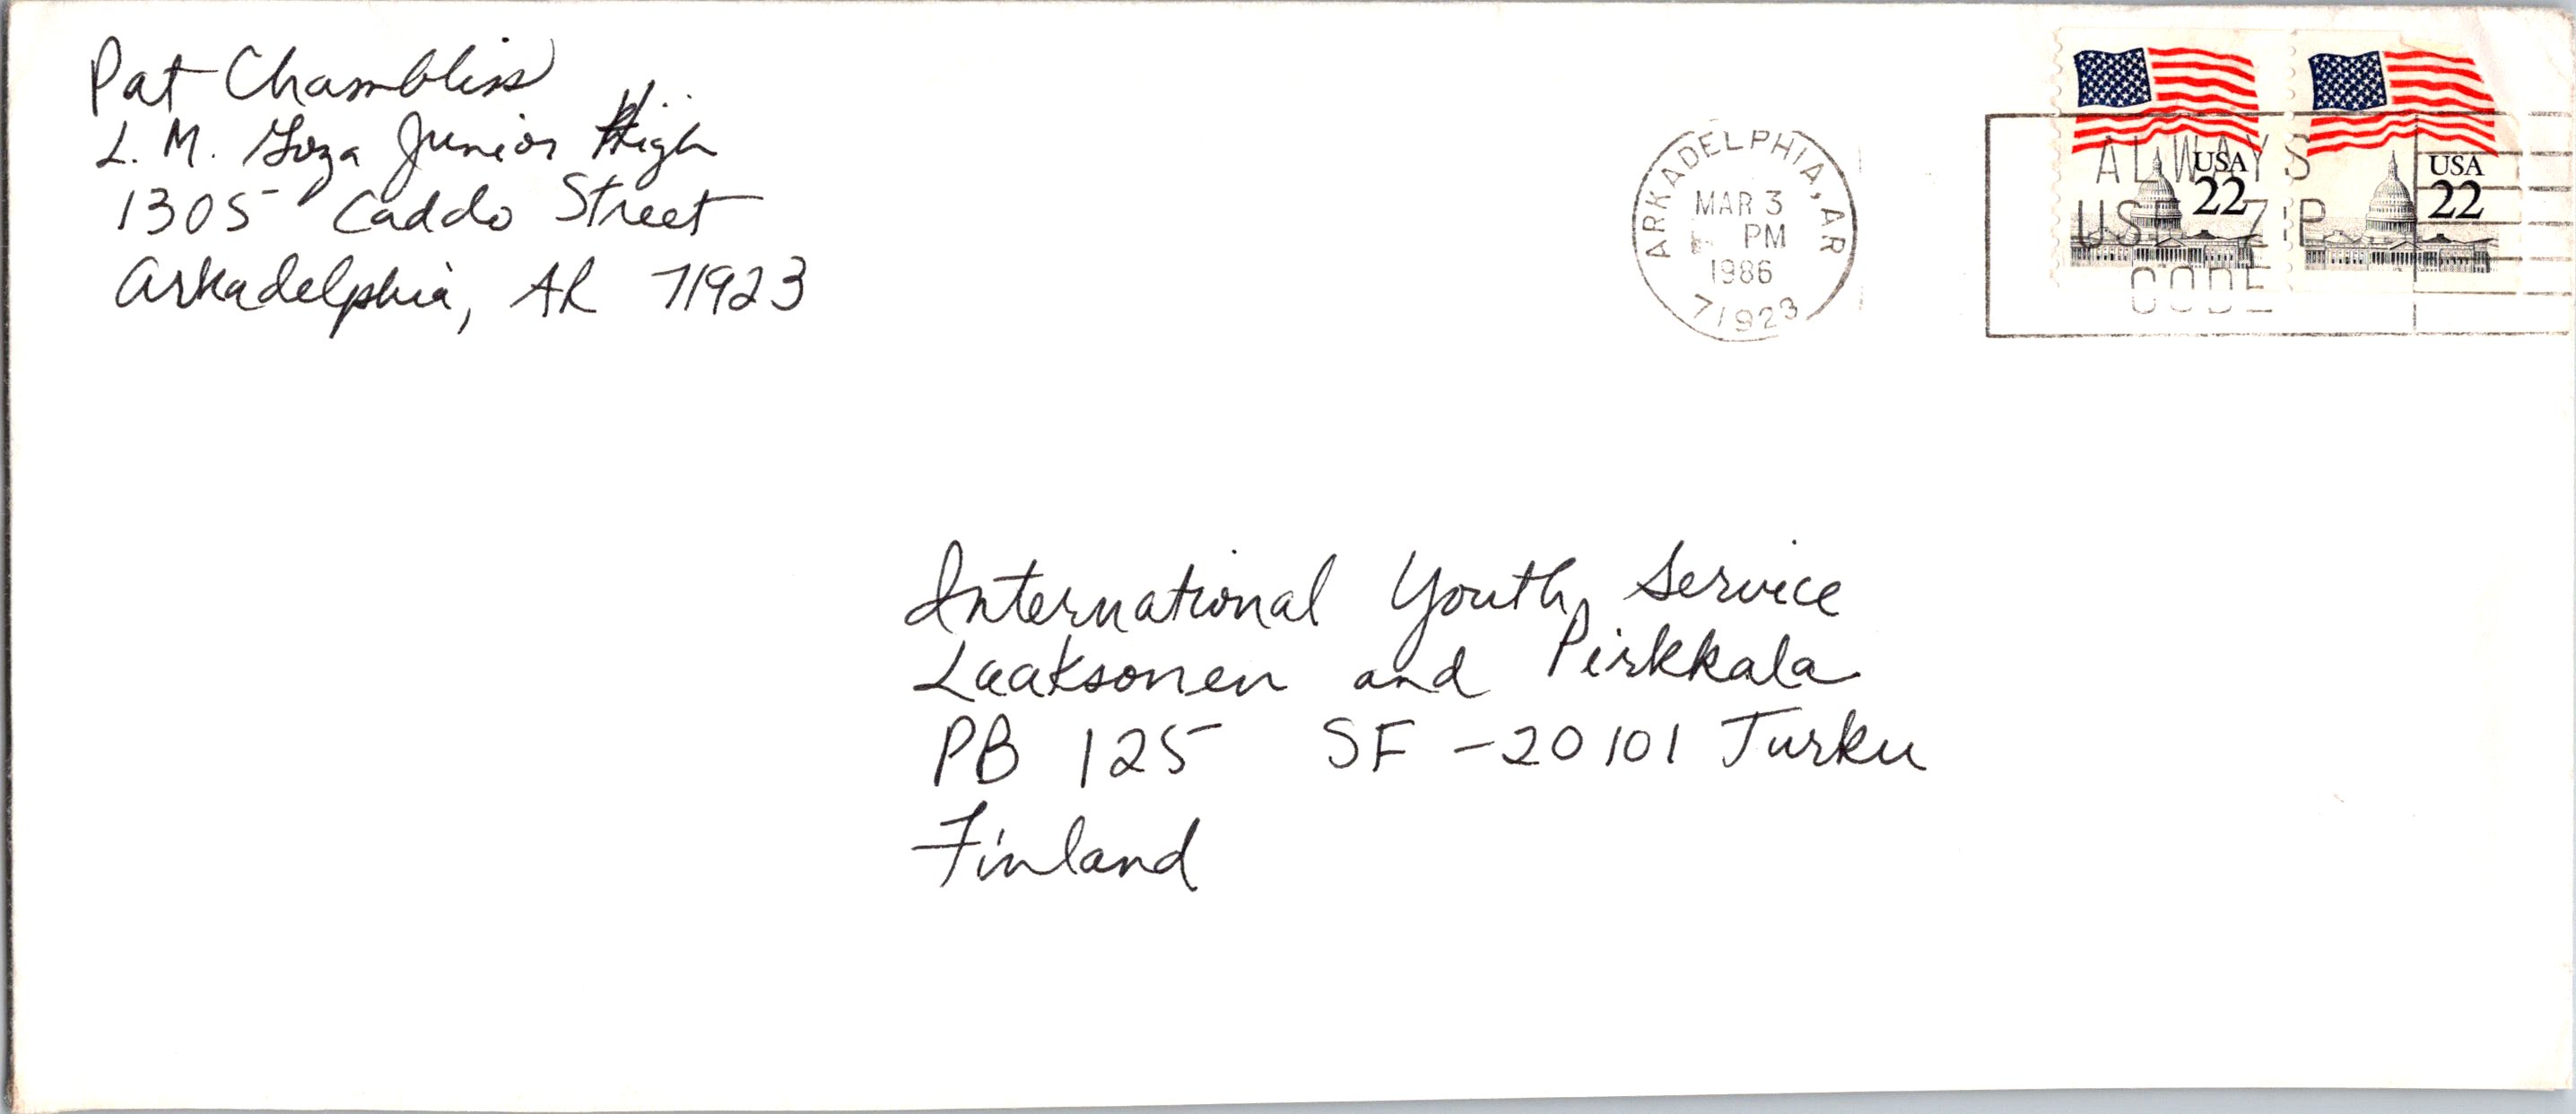 Pat Chambliss
L. M. Goza Junior High
1305 Caddo Street
Arkadelphia, AR 71923
ARKADELPHIA, AR
MAR 3
PM
1986
71923
ALWAYS
USE ZIP
CODE
USA
22
USA
22
International Youth Service
Laaksonen and Pirkkala
PB 125 SF -20101 Turku
Finland